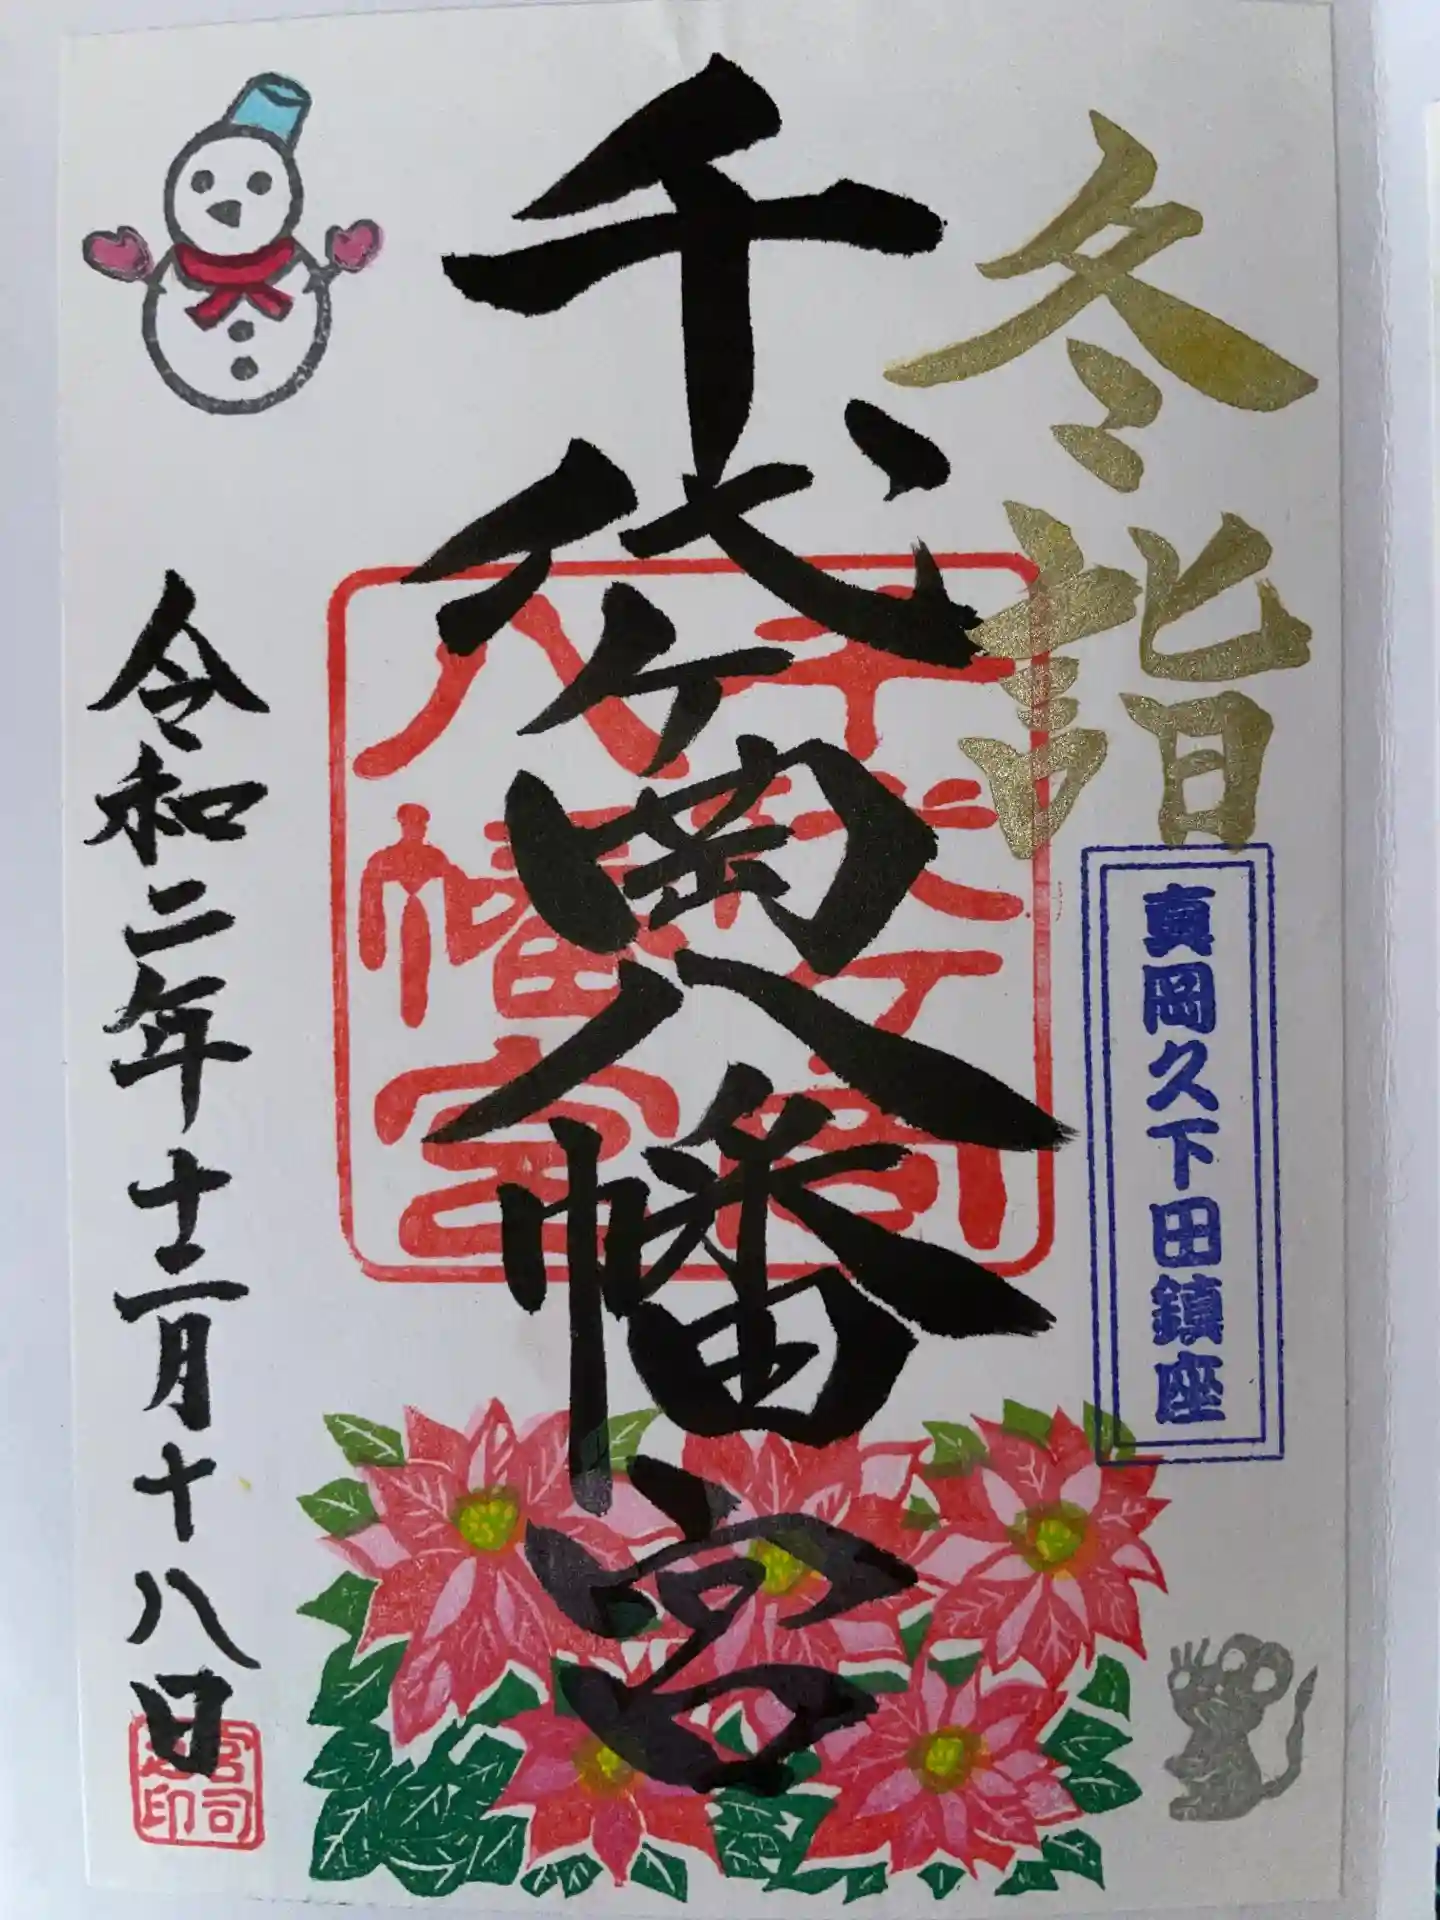 冬詣
真岡久下田鎮座
千代ヶ岡八幡宮
千代ヶ岡
八幡宮
令和二年十二月十八日
宮司
之印